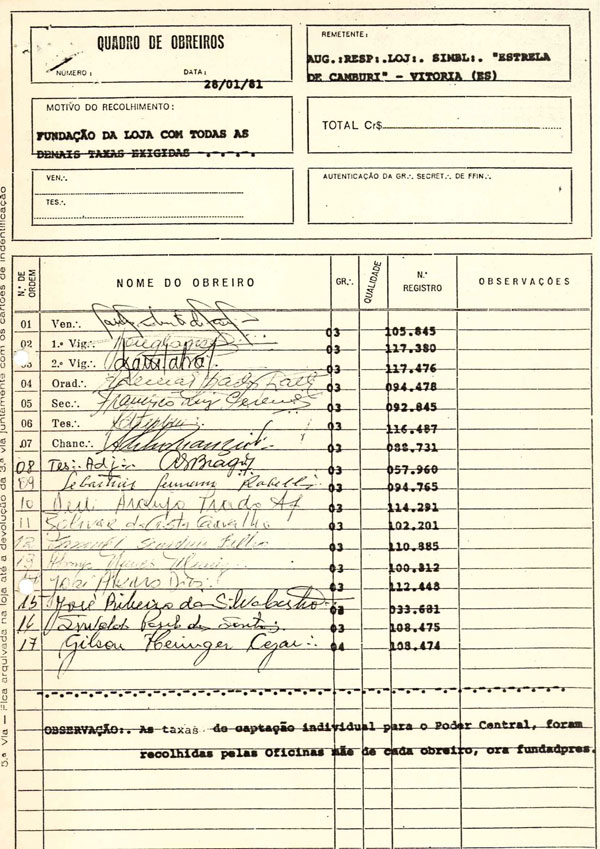 QUADRO DE OBREIROS
NÚMERO: DATA:
28/01/81
REMETENTE:
AUG.:RESP:.LOJ:. SIMBL:. "ESTRELA
DE CAMBURI" - VITORIA (ES)
MOTIVO DO RECOLHIMENTO:
FUNDAÇÃO DA LOJA COM TODAS AS
DEMAIS TAXAS EXIGIDAS -.-.-.-.
TOTAL Cr$
VEN.·.
TES.·.
AUTENTICAÇÃO DA GR.·. SECRET.·. DE FFIN.·.
N.º DE ORDEM NOME DO OBREIRO GR.·. QUALIDADE N.º REGISTRO OBSERVAÇÕES
01 Ven.·. 03 105.845
02 1.ª Vig.·. 03 117.380
03 2.ª Vig.·. 03 117.476
04 Orad.·. 03 094.478
05 Sec.·. Francisco Luiz 03 092.845
06 Tes.·. 03 116.487
07 Chanc.·. 03 088.731
08 Tes: Adj:. 03 057.960
09 Sebastião 03 094.765
10 Araujo Prado 03 114.291
11 da Costa Carvalho 03 102.201
12 Filho 03 110.885
13 Nunes 03 100.812
14 José Alvaro Dias 03 112.448
15 José Ribeiro da Silva 033.681
16 dos Santos 03 108.475
17 Gilson Heringer Cezar:. 04 108.474
OBSERVAÇÃO:. As taxas de captação individual para o Poder Central, foram
recolhidas pelas Oficinas mãe de cada obreiro, ora fundadpres.
5.ª Via — Fica arquivada na loja até a devolução da 3.ª via juntamente com os cartões de indentificação